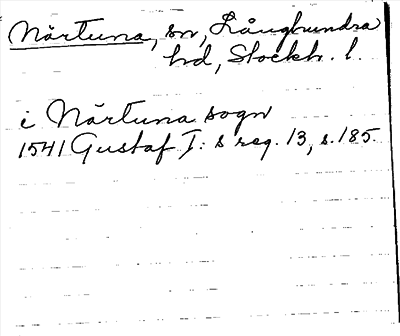 Närtuna, sn, Långhundra
hd, Stockh. l.
i Närtuna sogn
1541 Gustaf I:s reg. 13, s. 185.